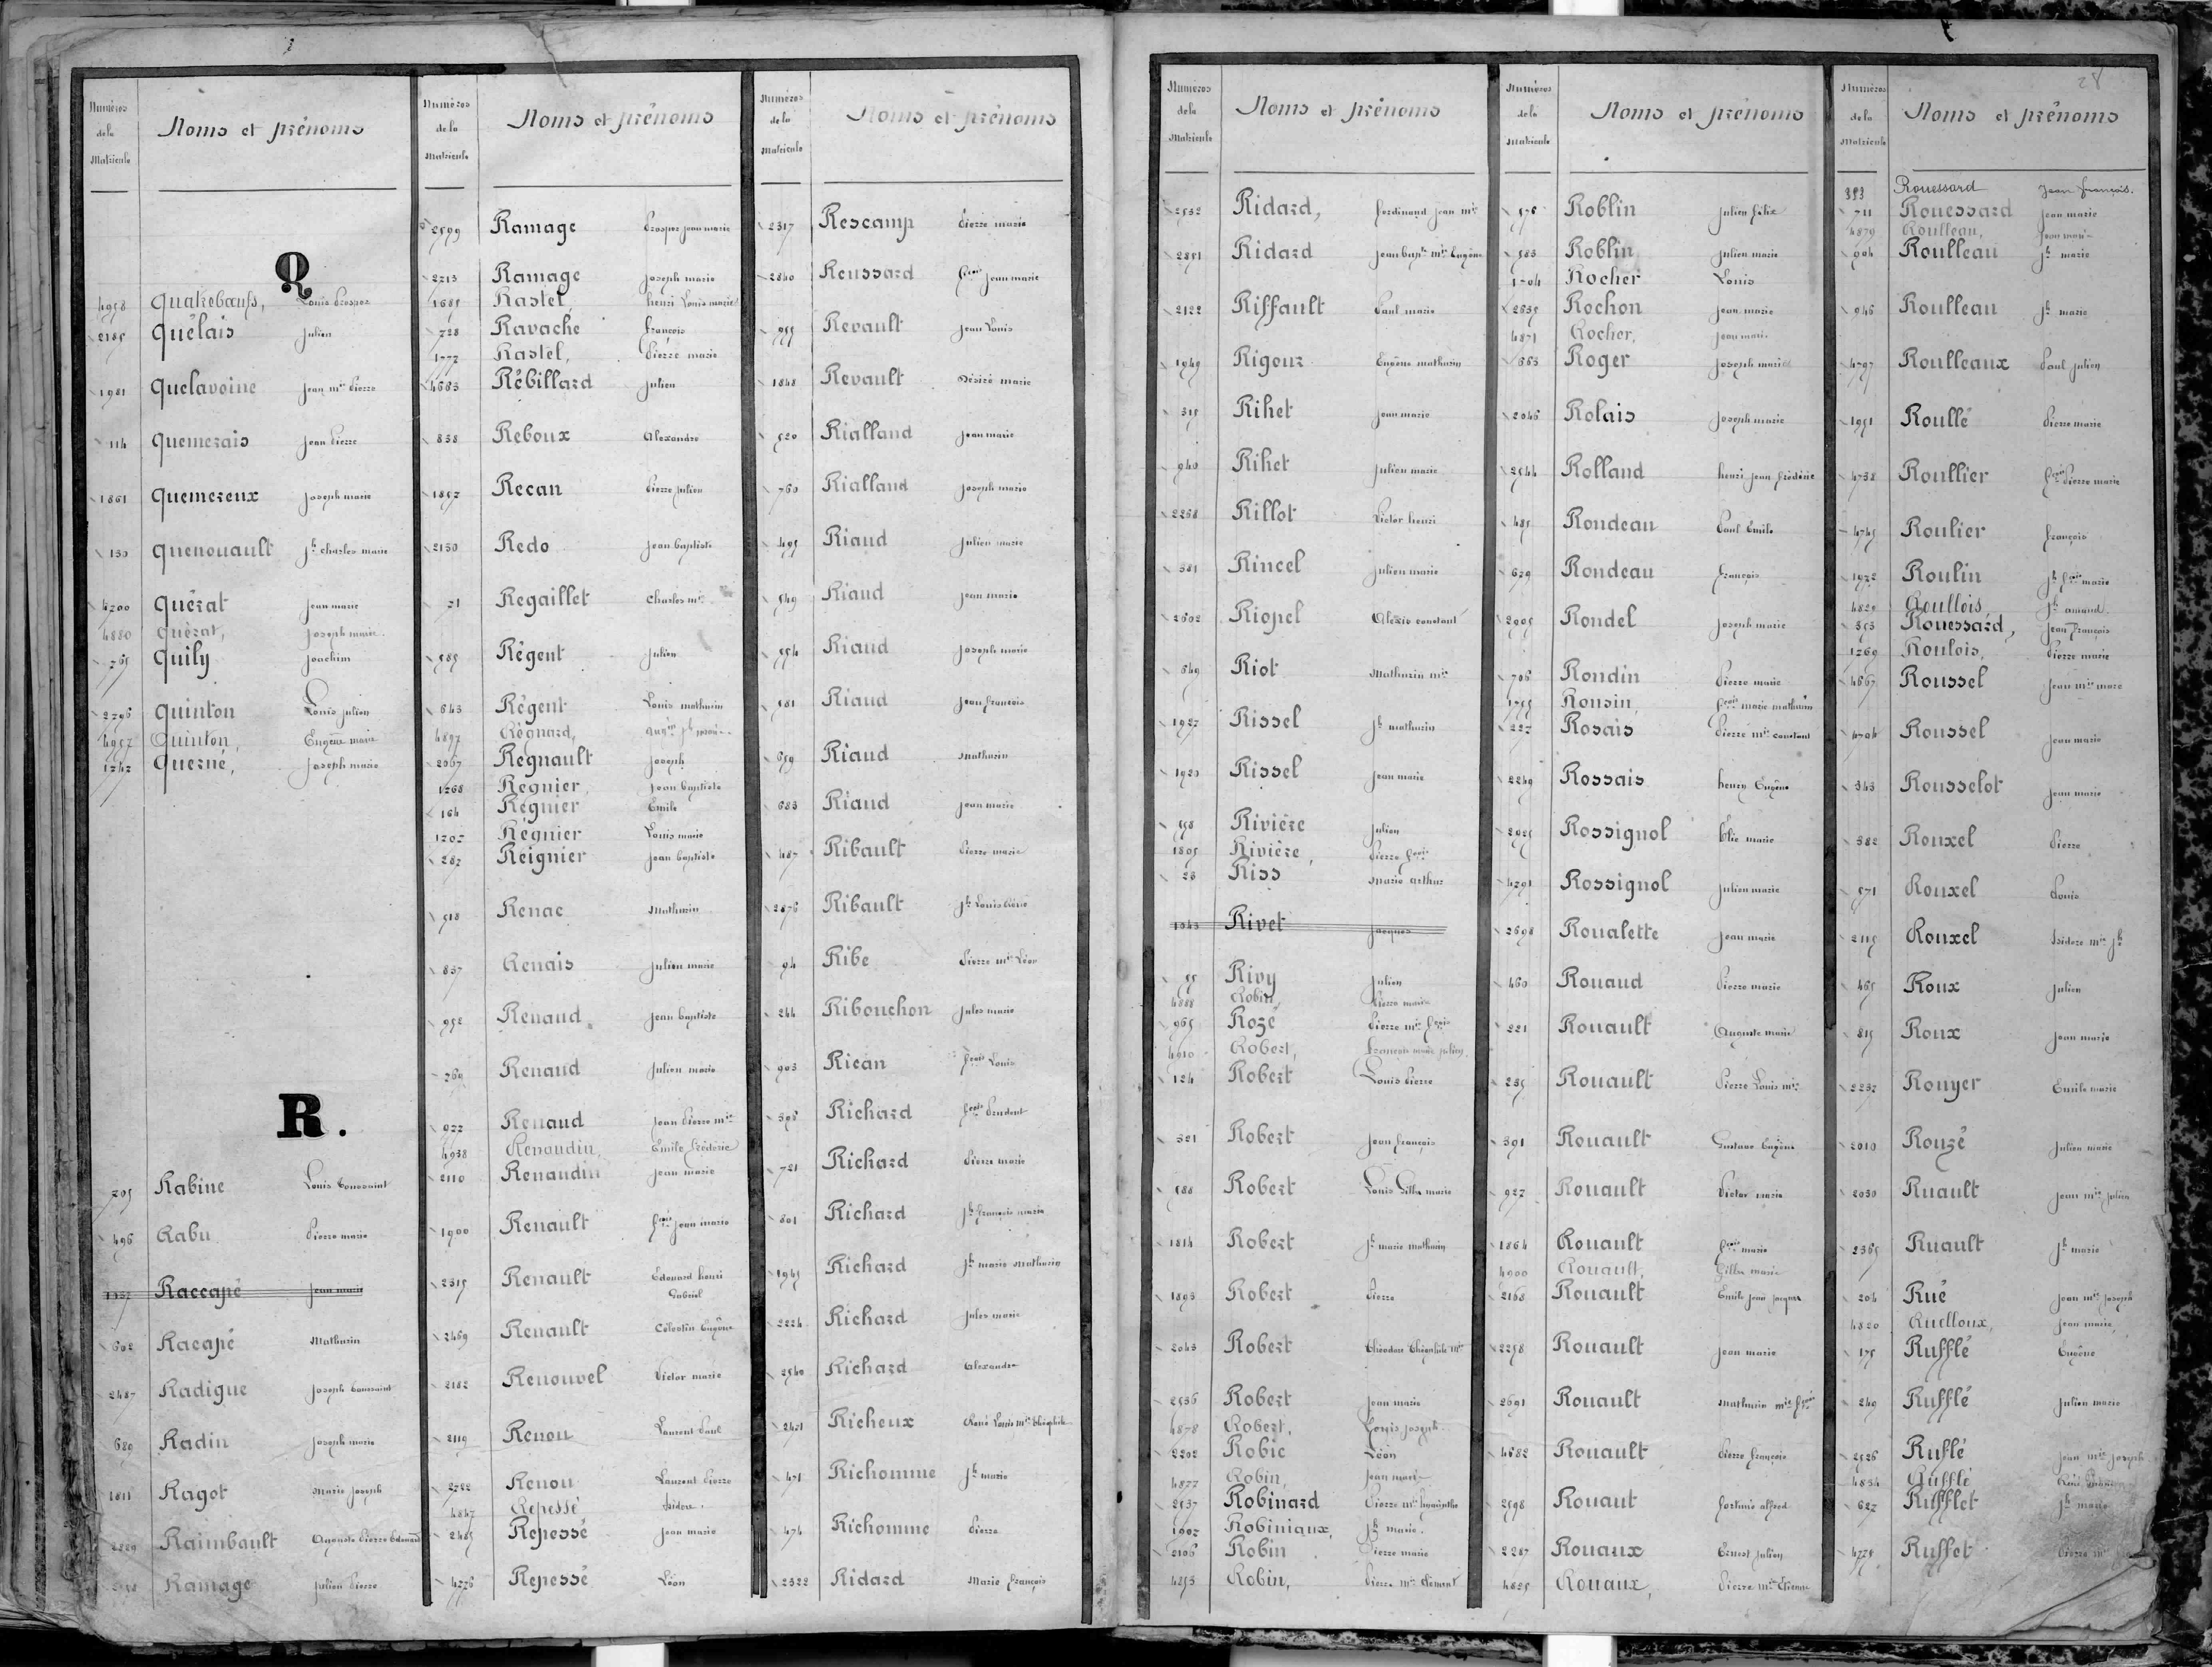 Numéros de la Matricule Noms et prénoms
Q
4958 Quatrebœufs, Louis Prosper
2185 Quélais Julien
1981 Quelavoine Jean Mie Pierre
114 Quemerais Jean Pierre
1861 Quemereux Joseph marie
130 Quenouault Jh Charles marie
4700 Quérat Jean marie
4880 Quérat, Joseph marie
765 Quily Joachim
2796 Quinton Louis Julien
4957 Quinton, Eugène marie
1242 Querné, Joseph marie
R.
705 Rabine Louis Toussaint
496 Rabu Pierre marie
Raccapé Jean marie
602 Racapé Mathurin
2487 Radigue Joseph Toussaint
689 Radin Joseph marie
1811 Ragot Marie Joseph
2229 Raimbault Auguste Pierre Edouard
Ramage Julien Pierre
Numéros de la Matricule Noms et prénoms
2599 Ramage Prosper Jean marie
2213 Ramage Joseph marie
1685 Rastel, henri Louis marie
728 Ravaché François
1777 Rastel, Pierre marie
4683 Rébillard Julien
838 Reboux Alexandre
1857 Recan Pierre Julien
2130 Redo Jean baptiste
71 Regaillet Charles mie
585 Régent Julien
643 Régent Louis mathurin
4897 Régnard,
2067 Regnault Joseph
1268 Regnier, Jean baptiste
164 Régnier Emile
1202 Régnier Louis marie
287 Reignier Jean baptiste
518 Renac Mathurin
837 Renais Julien marie
952 Renaud Jean baptiste
769 Renaud Julien marie
922 Renaud Jean Pierre mie
4938 Renaudin, Emile Fréderic
2110 Renaudin Jean marie
1900 Renault fçois Jean marie
2315 Renault Edouard henri
Gabriel
2469 Renault Célestin Eugène
2182 Renouvel Victor marie
2119 Renou Laurent Paul
2722 Renou Laurent Pierre
4847 Repessé Isidore.
2485 Repessé Jean marie
4776 Repessé Léon
Numéros de la Matricule Noms et prénoms
2317 Rescamp Pierre marie
2840 Reussard fçois Jean marie
955 Revault Jean Louis
1848 Revault Désiré marie
520 Rialland Jean marie
760 Rialland Joseph marie
495 Riaud Julien marie
549 Riaud Jean marie
554 Riaud Joseph marie
581 Riaud Jean François
659 Riaud Mathurin
683 Riaud Jean marie
487 Ribault Pierre marie
2876 Ribault Jh Louis
94 Ribe Pierre mie Léon
244 Ribouchon Jules marie
903 Rican fçois Louis
396 Richard fçois Prudent
721 Richard Pierre marie
801 Richard Jh François marie
1945 Richard Jh marie Mathurin
2224 Richard Jules marie
2540 Richard Alexandre
2421 Richeux René Louis mie Théophile
471 Richomme Jh marie
474 Richomme Pierre
2322 Ridard Marie François
Numéros de la Matricule Noms et prénoms
2532 Ridard, Ferdinand Jean mie
2851 Ridard Jean bapte mie Eugène
2122 Riffault Paul marie
1949 Rigour Eugène mathurin
315 Rihet Jean marie
940 Rihet Julien marie
2268 Rillot Victor henri
381 Rincel Julien marie
2602 Riopel Alexis constant
649 Riot Mathurin mie
1927 Rissel Jh mathurin
1920 Rissel Jean marie
558 Rivière Julien
1805 Rivière, Pierre fçois
28 Riss Marie arthur
1043 Rivet Jacques
55 Rivy Julien
4888 Robin, Pierre marie
965 Rozé Pierre mie fçois
4910 Robert, François marie Julien
124 Robert Louis Pierre
321 Robert Jean François
588 Robert Louis Gilles marie
1814 Robert Jh marie mathurin
1893 Robert Pierre
2043 Robert Théodore Théophile mie
2536 Robert Jean marie
4878 Robert, Louis Joseph
2202 Robic Léon
4877 Robin, Jean marie
2537 Robinard Pierre mie hyacinthe
1907 Robiniaux, Jh marie.
2106 Robin Pierre marie
4253 Robin, Pierre mie Clément
Numéros de la Matricule Noms et prénoms
576 Roblin Julien félix
583 Roblin Julien marie
1704 Rocher Louis
2635 Rochon Jean marie
4871 Rocher, Jean marie
663 Roger Joseph marie
2046 Rolais Joseph marie
2544 Rolland henri Jean frédéric
485 Rondeau Paul Emile
679 Rondeau François
2905 Rondel Joseph marie
706 Rondin Pierre marie
1755 Ronsin, fçois marie mathurin
227 Rosais Pierre mie constant
2249 Rossais henry Eugène
2025 Rossignol Elie marie
4291 Rossignol Julien marie
2698 Roualette Jean marie
460 Rouaud Pierre marie
221 Rouault Auguste marie
235 Rouault Pierre Louis mie
391 Rouault Gustave Eugène
927 Rouault Victor marie
1864 Rouault fçois marie
4900 Rouault, Gilles marie
2168 Rouault Emile Jean Jacques
2258 Rouault Jean marie
2691 Rouault Mathurin mie fçois
4682 Rouault Pierre François
2598 Rouaut fortuné alfred
2287 Rouaux Ernest Julien
4825 Rouaux, Pierre mie Etienne
28
Numéros de la Matricule Noms et prénoms
393 Rouessard Jean François.
711 Rouessard Jean marie
4879 Roulleau, Jean marie
904 Roulleau Jh marie
946 Roulleau Jh marie
4797 Roulleaux Paul Julien
1951 Roullé Pierre marie
4738 Roullier fçois Pierre marie
4745 Roulier François
1972 Roulin Jh fçois marie
4829 Roullois, Jh amand
393 Rouessard, Jean François
1269 Roulois, Pierre marie
4667 Roussel Jean mie marc
4704 Roussel Jean marie
343 Rousselot Jean marie
382 Rouxel Pierre
571 Rouxel Louis
2115 Rouxel Isidore mie Jh
465 Roux Julien
815 Roux Jean marie
2232 Rouyer Emile marie
2010 Rouzé Julien marie
2030 Ruault Jean mie Julien
2365 Ruault Jh marie
204 Rué Jean mie Joseph
4820 Ruelloux, Jean marie
175 Rufflé Eugène
249 Rufflé Julien marie
2526 Ruflé Jean mie Joseph
4834 Rufflé
627 Rufflet Jh marie
4775 Ruffet Pierre mie